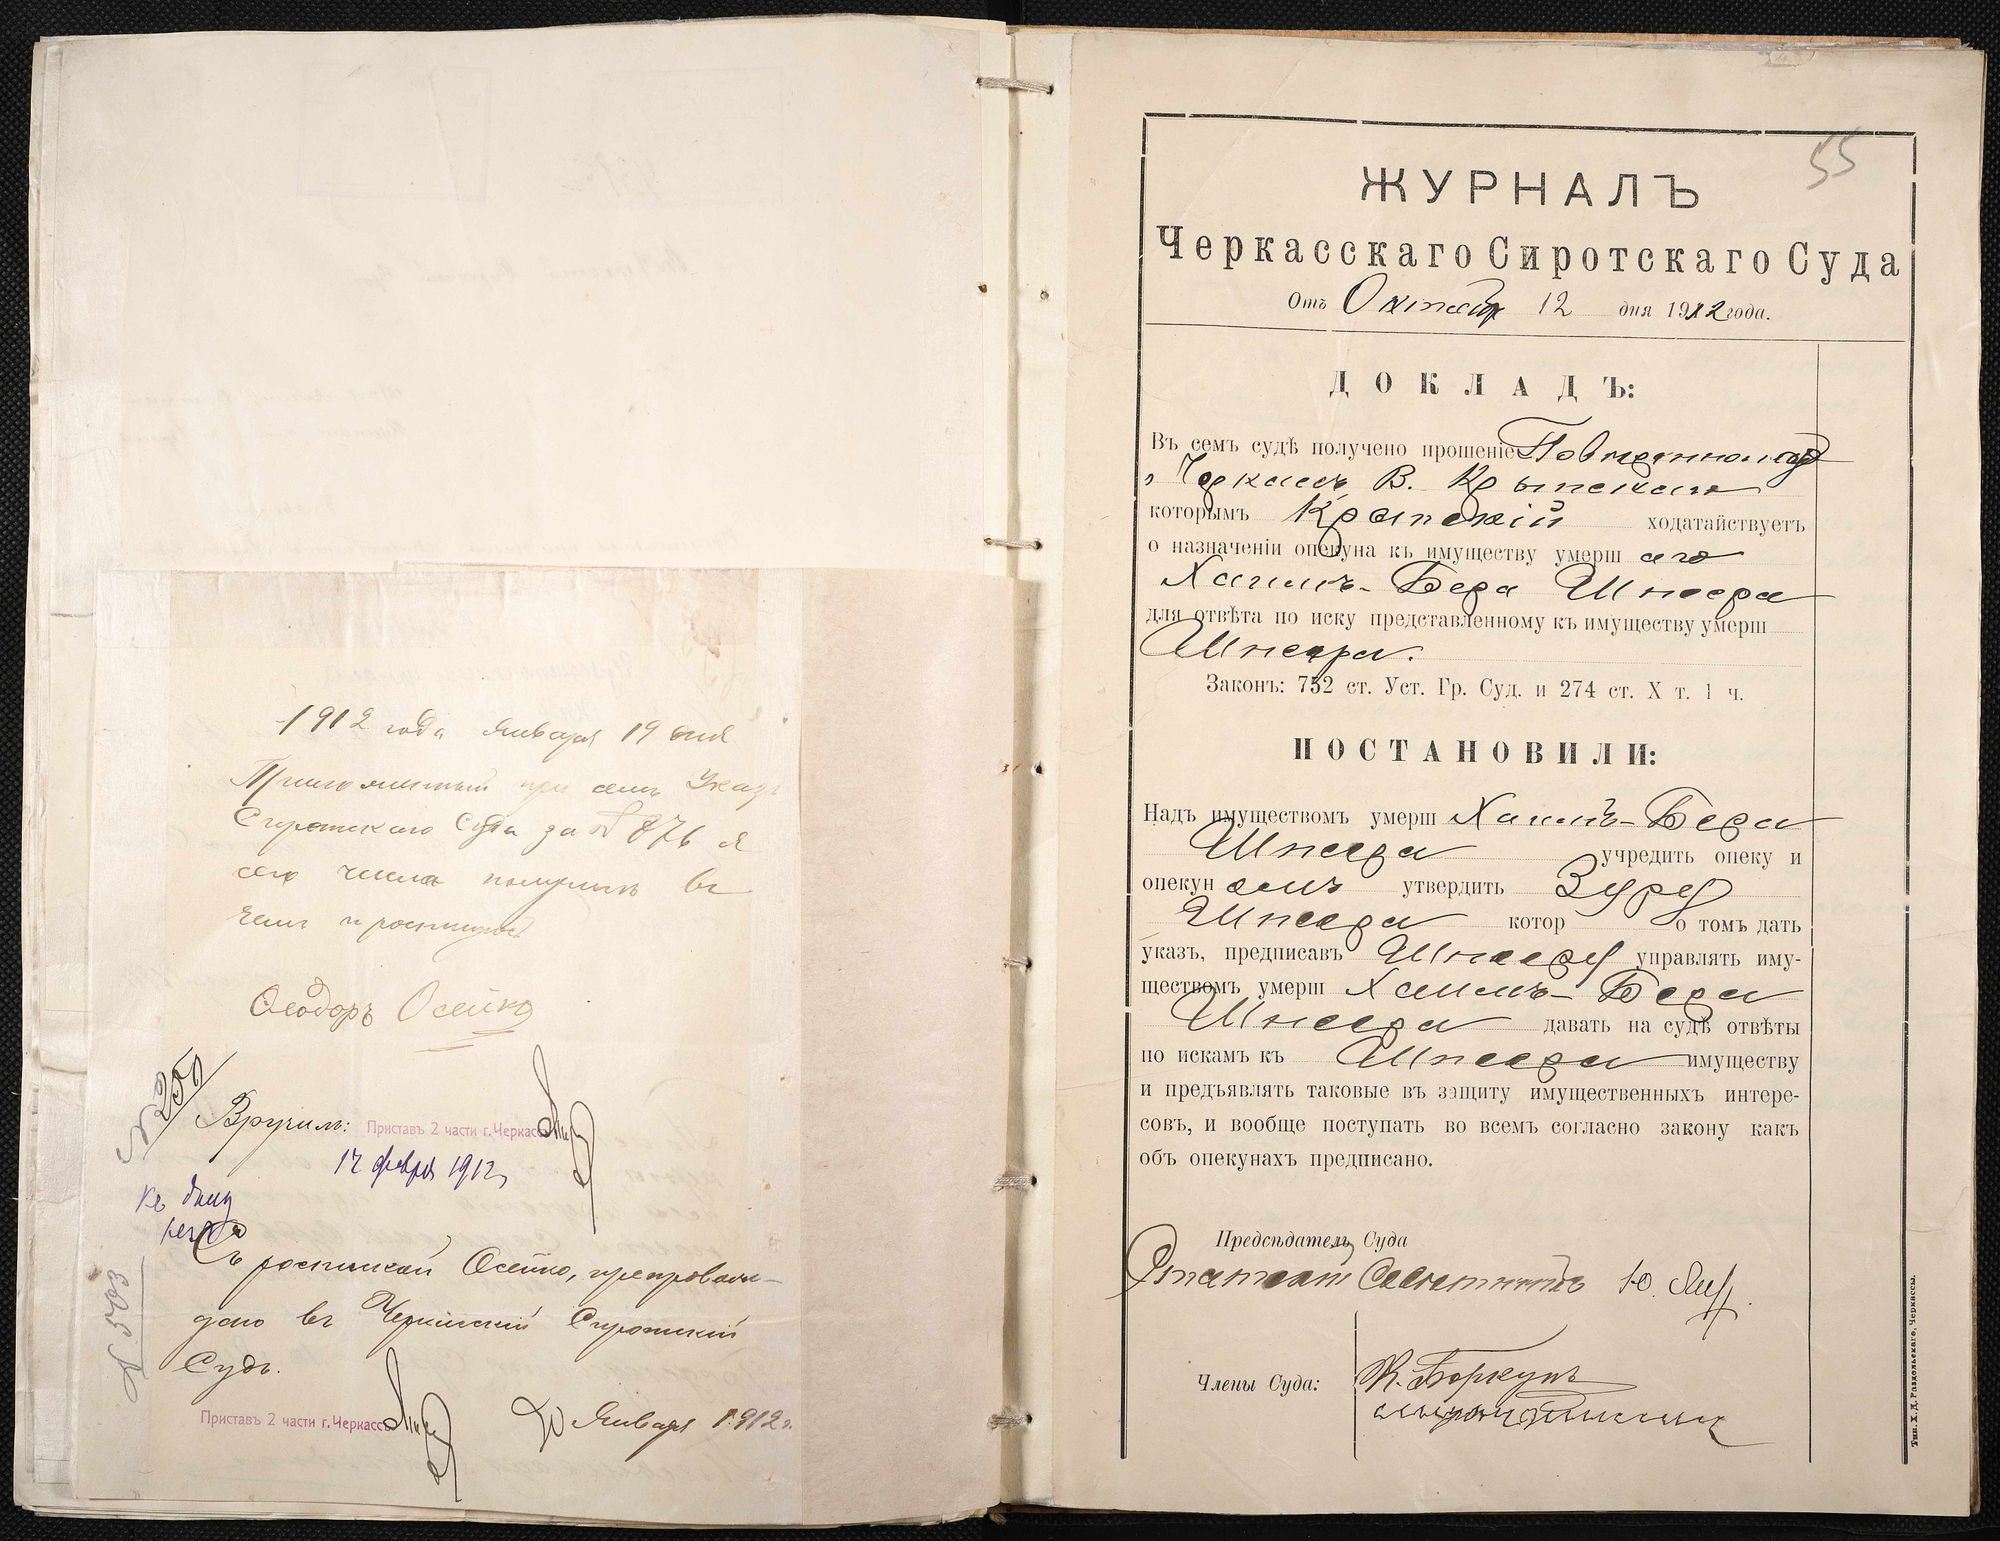 1912 года января 19 дня
Приложенный при семъ Указъ
Сиротскаго Суда за № 876 я
сего числа получилъ въ
чемъ и роспишусь
Феодоръ Осейко
№ 250
Вручилъ: Приставъ 2 части г. Черкассъ
17 февр 1912 г
Съ роспиской Осейко, препровож-
дено въ Черкасскій Сиротскій
Судъ.
№ 503
Приставъ 2 части г. Черкассъ
20 Января 1912 г.
55
ЖУРНАЛЪ
Черкасскаго Сиротскаго Суда
Отъ Октября 12 дня 1912 года.
ДОКЛАДЪ:
Въ семъ судѣ получено прошеніе Повѣреннаго
г Черкассъ В.
которымъ ходатайствуетъ
о назначеніи опекуна къ имуществу умерш аго
Хаимъ-Бера Шпеера
для отвѣта по иску представленному къ имуществу умерш
Шпеера.
Законъ: 752 ст. Уст. Гр. Суд. и 274 ст. X т. 1 ч.
ПОСТАНОВИЛИ:
Надъ имуществомъ умерш Хаимъ-Бера
Шпеера учредить опеку и
опекун омъ утвердить
Шпеера котор о томъ дать
указъ, предписавъ Шпееру управлять иму-
ществомъ умерш Хаимъ-Бера
Шпеера давать на судѣ отвѣты
по искамъ къ Шпеера имуществу
и предъявлять таковые въ защиту имущественныхъ интере-
совъ, и вообще поступать во всемъ согласно закону какъ
объ опекунахъ предписано.
Предсѣдатель Суда
Статскій Совѣтникъ Ю.
Члены Суда: К. Боркунъ
Тип. Х. Д. Раздольскаго, Черкассы.